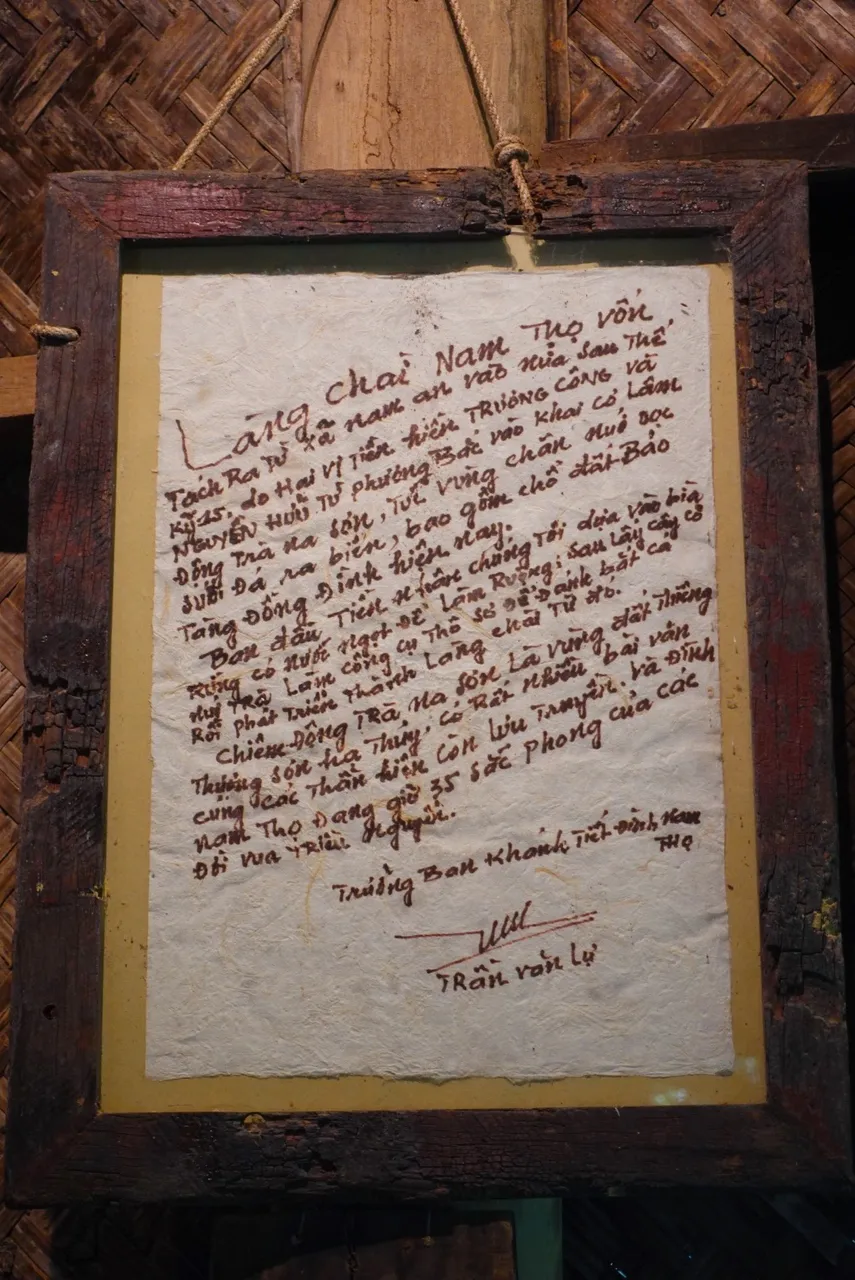 Làng chài Nam Thọ vốn
Tách Ra Từ xã nam an vào nửa sau Thế
Kỹ 15, do Hai vị Tiền hiền TRƯƠNG CÔNG và
NGUYỄN HỮU TỪ phương Bắc vào Khai cơ Lâm
Động Trà na sơn, Từ vùng chăn nuô dọc
suối Đá ra biển, bao gồm chỗ đất Bảo
Tàng Đồng Đình hiện nay.
Ban đầu Tiền nhân chúng Tôi dựa vào bìa
Rừng có nước ngọt Để Làm Ruộng; sau Lấy cây cỏ
nuí TRà Làm công cụ Thô sơ Để Đánh bắt cá
Rồi phát Triển Thành Làng chài Từ đó.
Chiêm Động TRà na sơn Là vùng đất Thiêng
Thượng sơn hạ Thủy, có Rất nhiều bài văn
cúng các Thần hiện còn Lưu Truyền và Đình
nam Thọ Đang giữ 35 sắc phong của các
Đời vua TRiều nguyễn.
Trưởng Ban Khánh Tiết Đình Nam
Thọ
TRần văn Lự